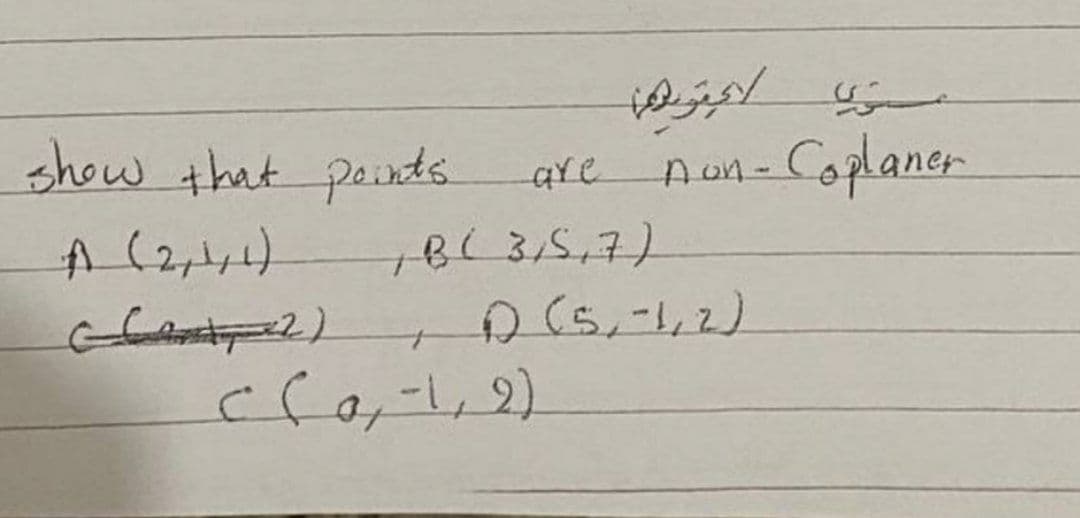 مستوي
show that points are non-Coplaner
A (2,1,1) , B( 3,5,7)
, D (5,-1,2)
C (0,-1,2)